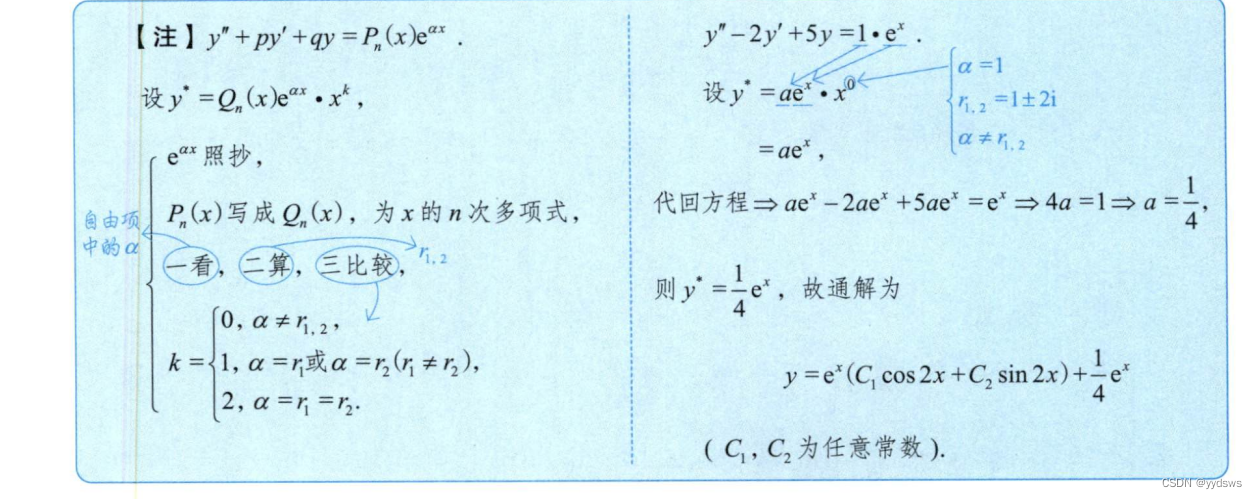 【注】y″+py′+qy=Pₙ(x)e^{αx}.
设 y*=Qₙ(x)e^{αx}•x^k,
e^{αx}照抄,
Pₙ(x)写成Qₙ(x), 为x的n次多项式,
自由项
中的α
一看, 二算, 三比较,
r₁,₂
k=
0, α≠r₁,₂,
1, α=r₁或α=r₂(r₁≠r₂),
2, α=r₁=r₂.
y″−2y′+5y=1•e^x.
设 y*=ae^x•x^0
α=1
r₁,₂=1±2i
α≠r₁,₂
=ae^x,
代回方程⇒ae^x−2ae^x+5ae^x=e^x⇒4a=1⇒a=1/4,
则 y*=1/4 e^x, 故通解为
y=e^x(C₁cos2x+C₂sin2x)+1/4 e^x
(C₁, C₂为任意常数).
CSDN @yydsws